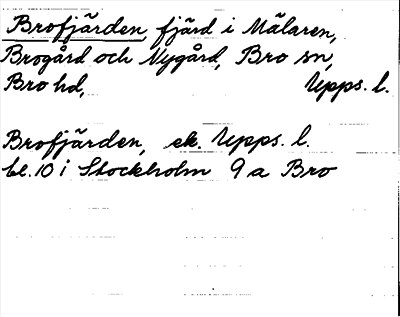 Brofjärden, fjärd i Mälaren,
Brogård och Nygård, Bro sn,
Bro hd, Upps. l.
Brofjärden, ek. Upps. l.
bl. 10 i Stockholm 9a Bro